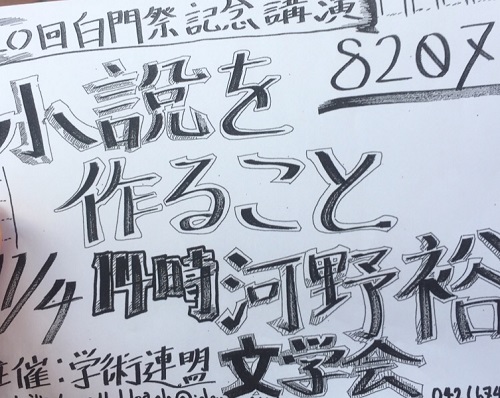 ○回白門祭記念講演
8207
小説を
作ること
11/4 14時 河野裕
主催:学術連盟 文学会